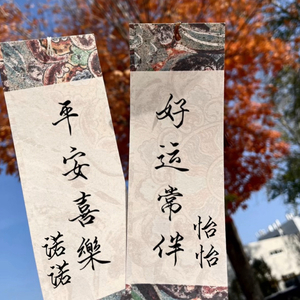 平安喜樂
諾諾
好運常伴
怡怡